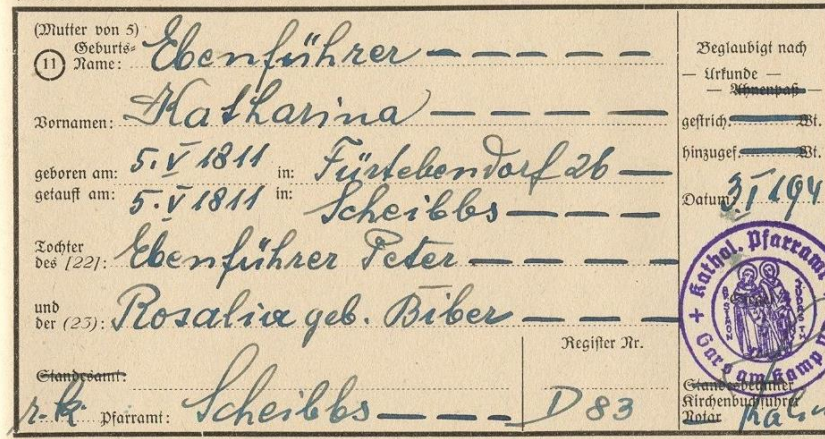 (Mutter von 5)
Geburts-
(11) Name: Ebenführer
Vornamen: Katharina
geboren am: 5. V 1811 in: Fürtebendorf 26
getauft am: 5. V 1811 in: Scheibbs
Tochter
des [22]: Ebenführer Peter
und
der (23): Rosalia geb. Biber
Standesamt:
r.k. Pfarramt: Scheibbs
Register Nr.
D 83
Beglaubigt nach
— Urkunde —
— Ahnenpaß —
gestrich. Wt.
hinzugef. Wt.
Datum: 3. I 194
Kathol. Pfarramt
Gars am Kamp
Standesbeamter
Kirchenbuchführer
Notar